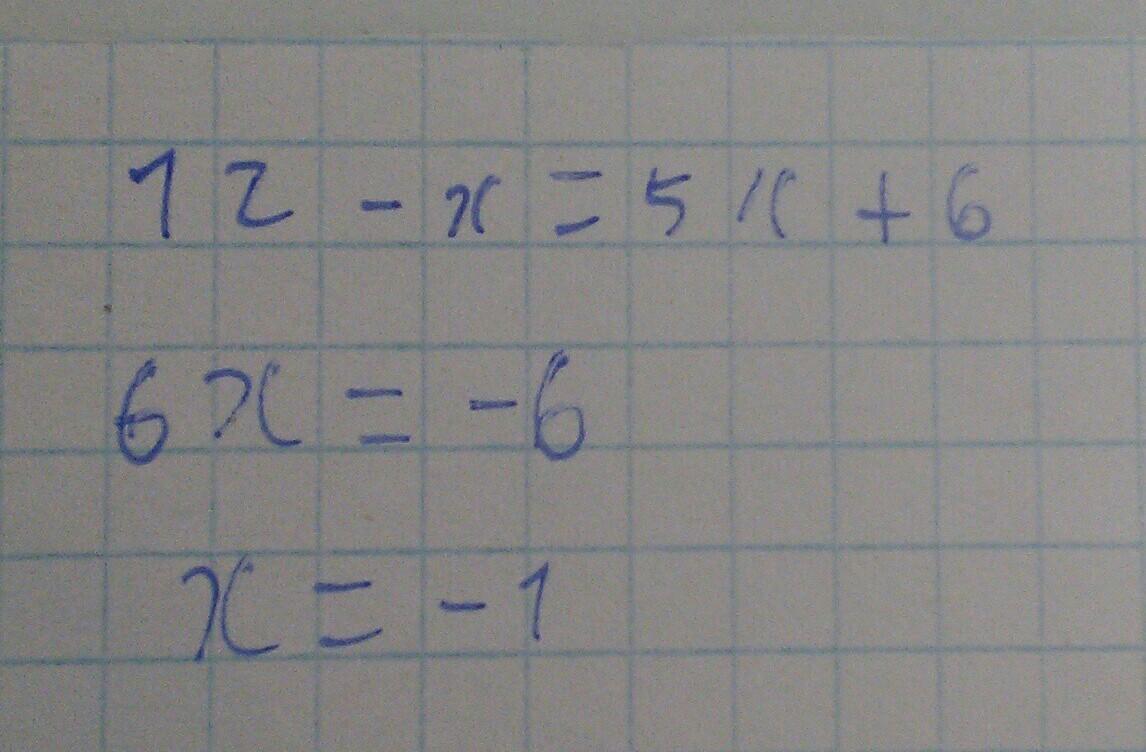 12 - x = 5x + 6
6x = -6
x = -1